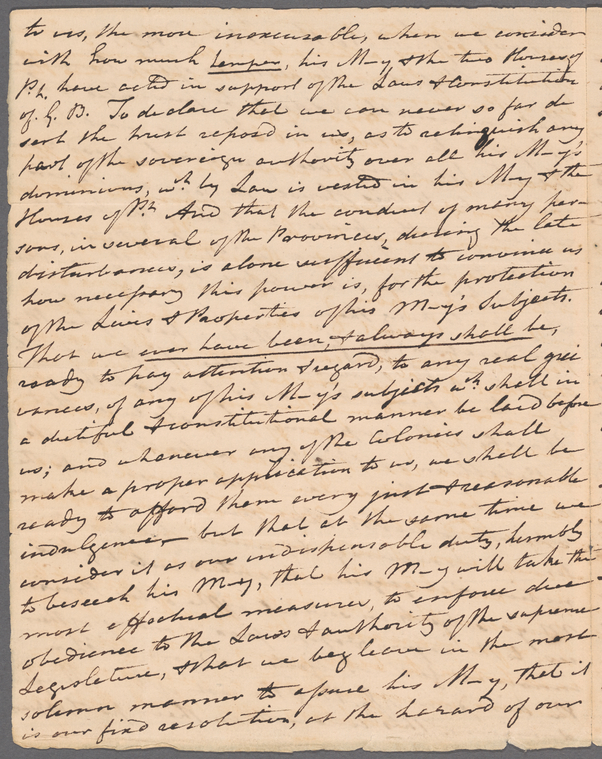 to us, the more inexcusable, when we consider
with how much temper, his M—y & the two Houses of
Pt. have acted in support of the Laws & Constitution
of G. B. To declare that we can never so far de
sert the trust reposed in us, as to relinquish any
part of the sovereign authority over all his M—y's
dominions, wh. by Law is vested in his M—y & the
Houses of Pt. And that the conduct of many per-
sons, in several of the Provinces, during the late
disturbances, is alone sufficient to convince us
how necessary this power is, for the protection
of the Lives & Properties of his M—y's Subjects.
That we ever have been, & always shall be,
ready to pay attention & regard, to any real grie
vances, of any of his M—y's subjects wh. shall in
a dutiful & constitutional manner be laid before
us; and whenever any of the Colonies shall
make a proper application to us, we shall be
ready to afford them every just & reasonable
indulgence but that at the same time we
consider it as our indispensable duty, humbly
to beseech his M—y, that his M—y will take the
most effectual measures, to enforce due
obedience to the Laws & authority of the supreme
Legislature, & that we beg leave in the most
solemn manner to assure his M—y, that it
is our fixd resolution, at the hazard of our